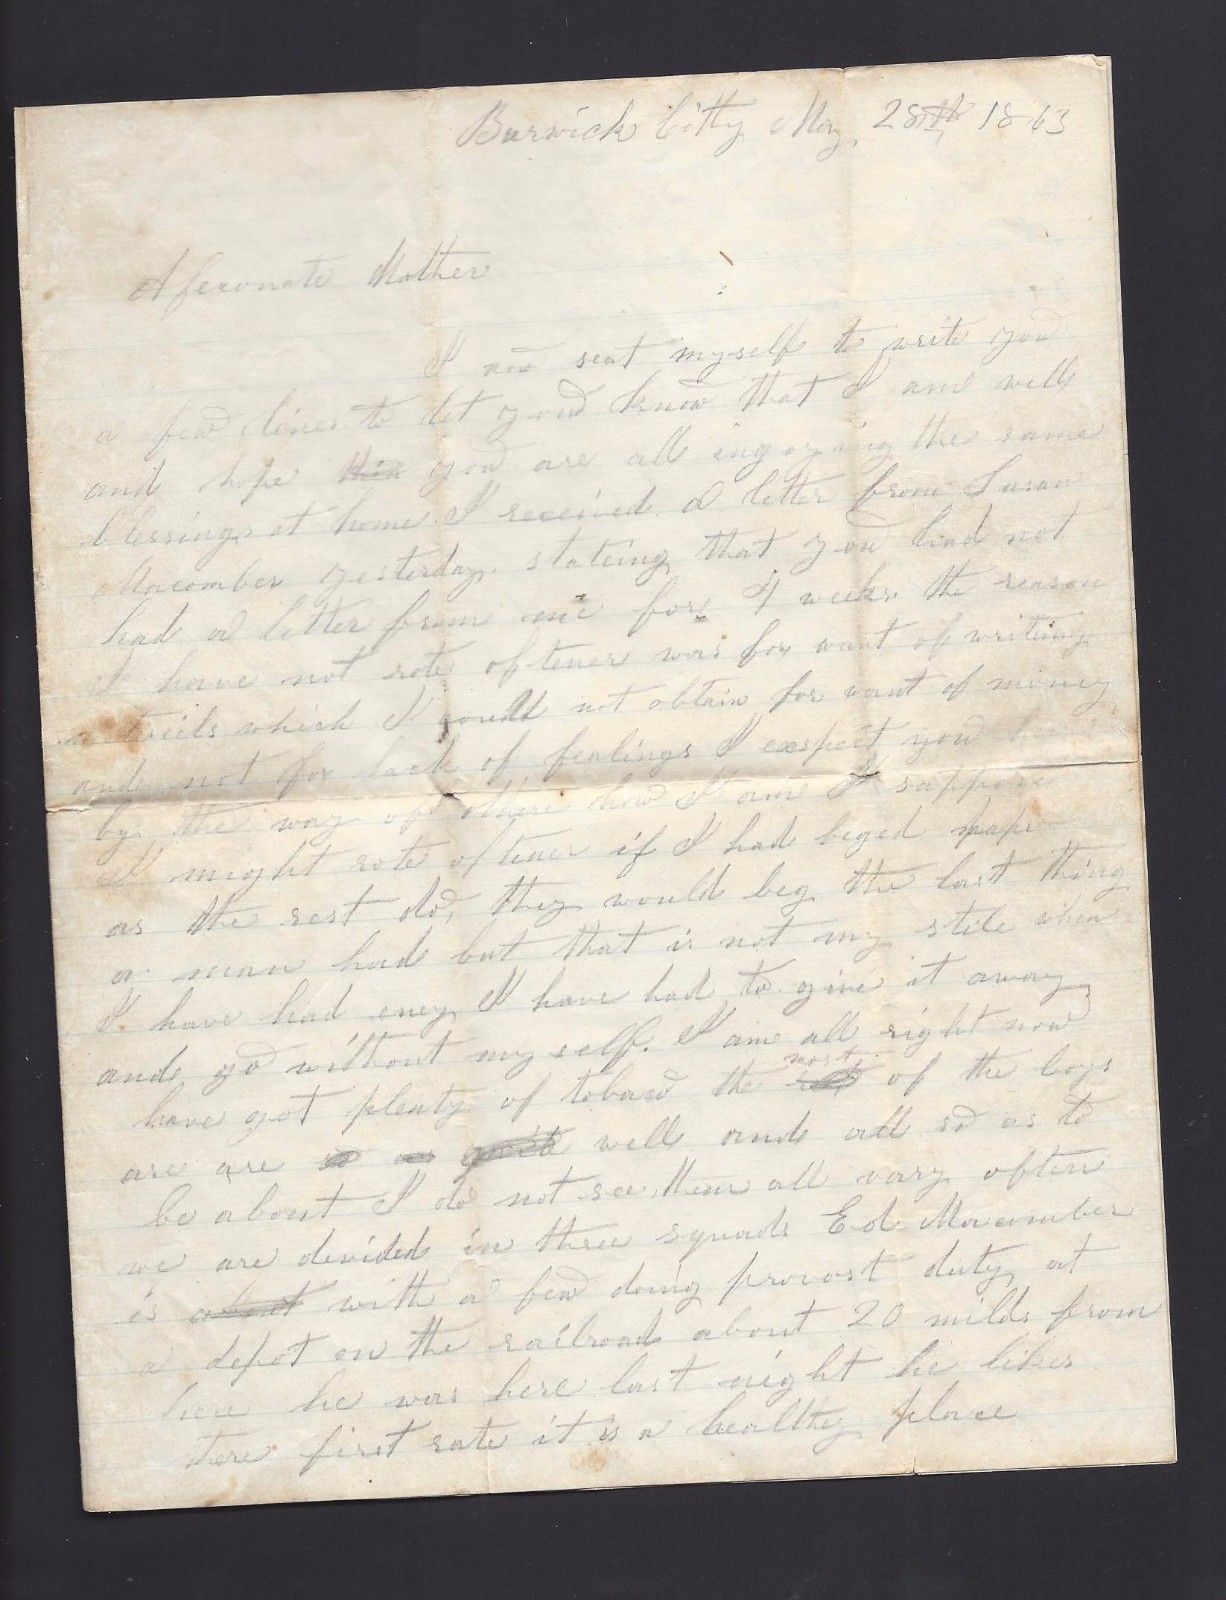 Burwick Citty May 28th, 1863
Afexonate Mother
I now seat myself to write you
a few lines to let you know that I am well
and hope you are all ingoying the same
blessings at home. I received a letter from Susan
Macomber yesterday. stateing that you had not
had a letter from me for 4 weeks. the reason
I have not rote oftener was for want of writing
which I could not obtain for want of money
and not for lack of fealings I exspect you
by the way of others how I am I suppose
I might rote oftener if I had beged pape
as the rest do, they would beg the last thing
a man had but that is not my stile when
I have had eney I have had to give it away
and go without myself. I am all right now
have got plenty of tobaco the most of the boys
are are well and all so as to
be about I do not see them all vary often
we are devided in three squads Ed Macomber
is about with a few doing provost duty at
a depot on the railroad about 20 milds from
here he was here last night he likes
there first rate it is a healthy place